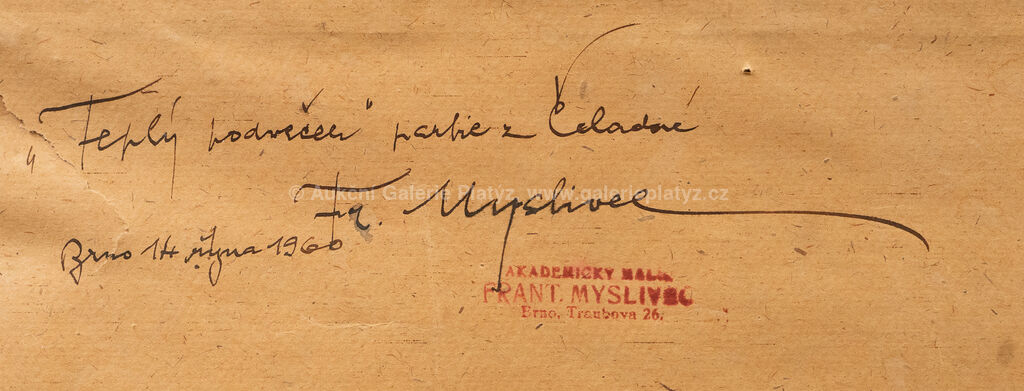 „Teplý podvečer" partie z Čeladné
© Aukční Galerie Platýz, www.galerieplatyz.cz
Fr. Myslivec
Brno 14 října 1960
AKADEMICKÝ MALÍŘ
FRANT. MYSLIVEC
Brno, Traubova 26.